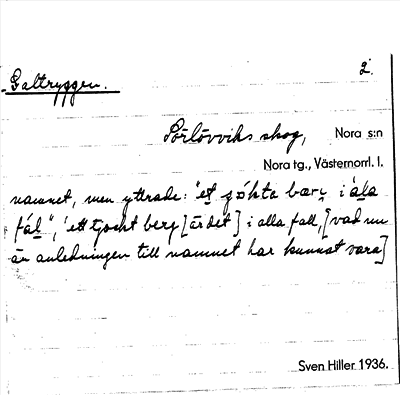 2.
Galtryggen.
Pörlövviks skog, Nora s:n
Nora tg., Västernorrl. l.
namnet, men yttrade: "et
i åla
fál", 'ett tjockt berg [är det] i alla fall, [vad nu
än anledningen till namnet har kunnat vara]
Sven Hiller 1936.